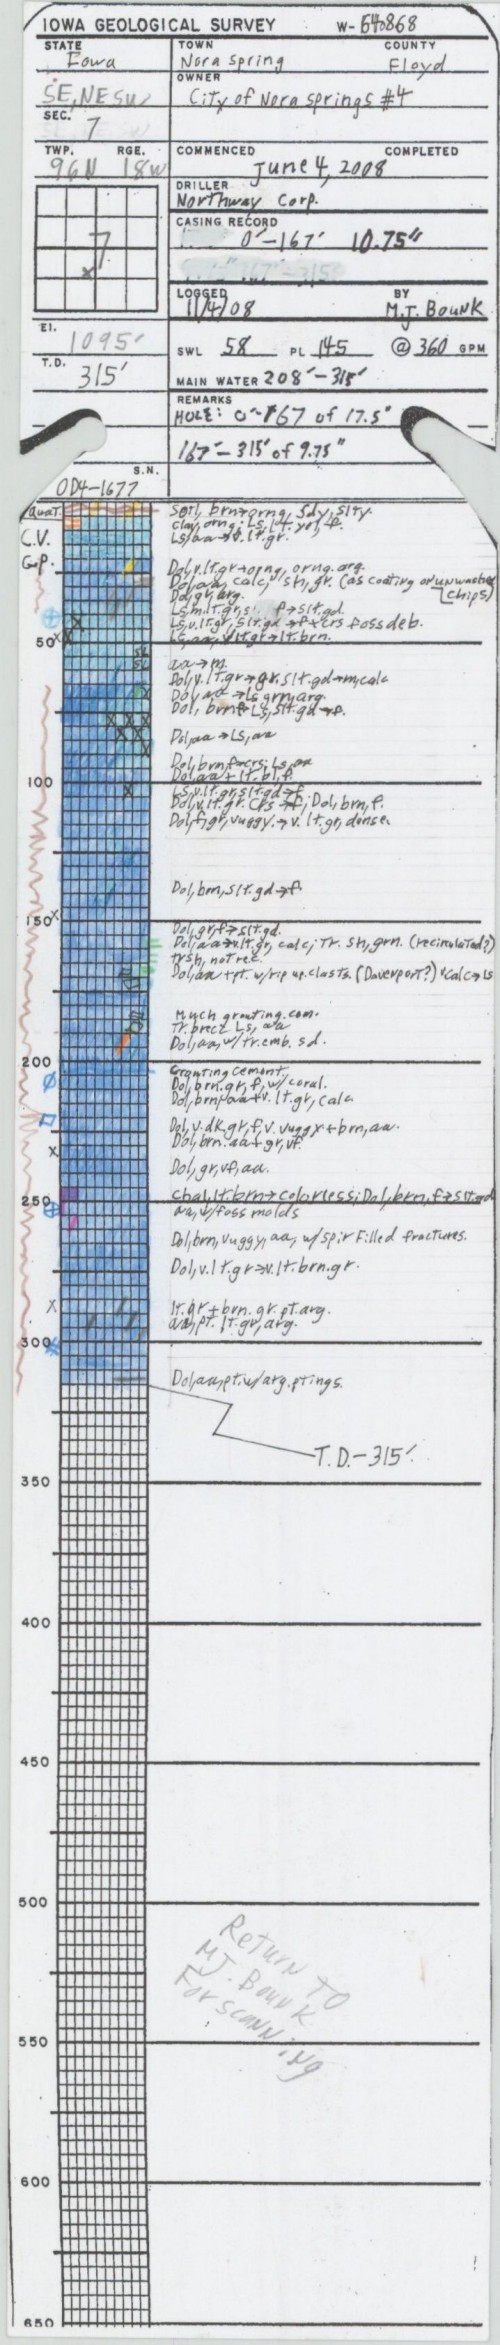 IOWA GEOLOGICAL SURVEY W-
STATE TOWN COUNTY
Iowa Nora Spring Floyd
OWNER
SE, NE SW City of Nora Springs #4
SEC. 7
TWP. RGE. COMMENCED COMPLETED
96N 18W June 4, 2008
DRILLER
Northway Corp.
CASING RECORD
7 0'-167' 10.75"
x
LOGGED BY
11/4/08 M.J. BOUNK
El. 1095'
SWL 58 PL 145 @ 360 GPM
T.D. 315'
MAIN WATER 208'-315'
REMARKS
HOLE: 0-167 of 17.5"
167'-315' of 9.75"
S.N.
OD4-1677
Quat. Soil, brn→orng, sdy, slty.
clay, orng; Ls, lt. yel, f.
C.V. Ls, aa→v. lt. gr.
G.P. Dol, v. lt. gr→orng, orng. arg.
Dol, aa, calc, sh, gr. (as coating on unwashed chips)
Dol, gr, arg.
Ls, m. lt. gr, f→slt. gd.
Ls, v. lt. gr, slt. gd→f+crs foss deb.
50 Ls, aa, v. lt. gr→lt. brn.
SL
SL aa→m.
Dol, v. lt. gr→gr. slt. gd→m, calc
Dol, aa→Ls grn, arg.
Dol, brn, f+Ls, slt. gd→f.
Dol, aa→Ls, aa
Dol, brn, f→crs; Ls, aa
Dol, aa + lt. bl, f.
100 Ls, v. lt. gr, slt. gd→f
Dol, v. lt. gr. crs→f; Dol, brn, f.
Dol, f, gr, vuggy→v. lt. gr, dense.
Dol, brn, slt. gd→f.
150 Dol, gr, f→slt. gd.
Dol, aa→v. lt. gr, calc; Tr. sh, grn. (recirculated?)
trsh, not rec.
Dol, aa + pt. w/rip up clasts. (Davenport?) calc→Ls
Much grouting cem.
Tr. brecc Ls, aa
Dol, aa, w/tr. emb. sd.
200 Grouting cement.
Dol, brn. gr, f, w/coral.
Dol, brn, aa+v. lt. gr, calc
Dol, v. dk. gr, f, v. vuggy+brn, aa.
Dol, brn. aa+gr, vf.
Dol, gr, vf, aa.
250 Chal, lt. brn→colorless; Dol, brn, f→slt. gd
aa, w/foss molds
Dol, brn, vuggy, aa, w/spar filled fractures.
Dol, v. lt. gr→v. lt. brn. gr.
lt. gr + brn. gr. pt. arg.
aa, pt. lt. gr, arg.
300
Dol, aa, pt. w/arg. ptings.
T.D.-315'
350
400
450
500
Return to
M.J. Bounk
For scanning
550
600
650